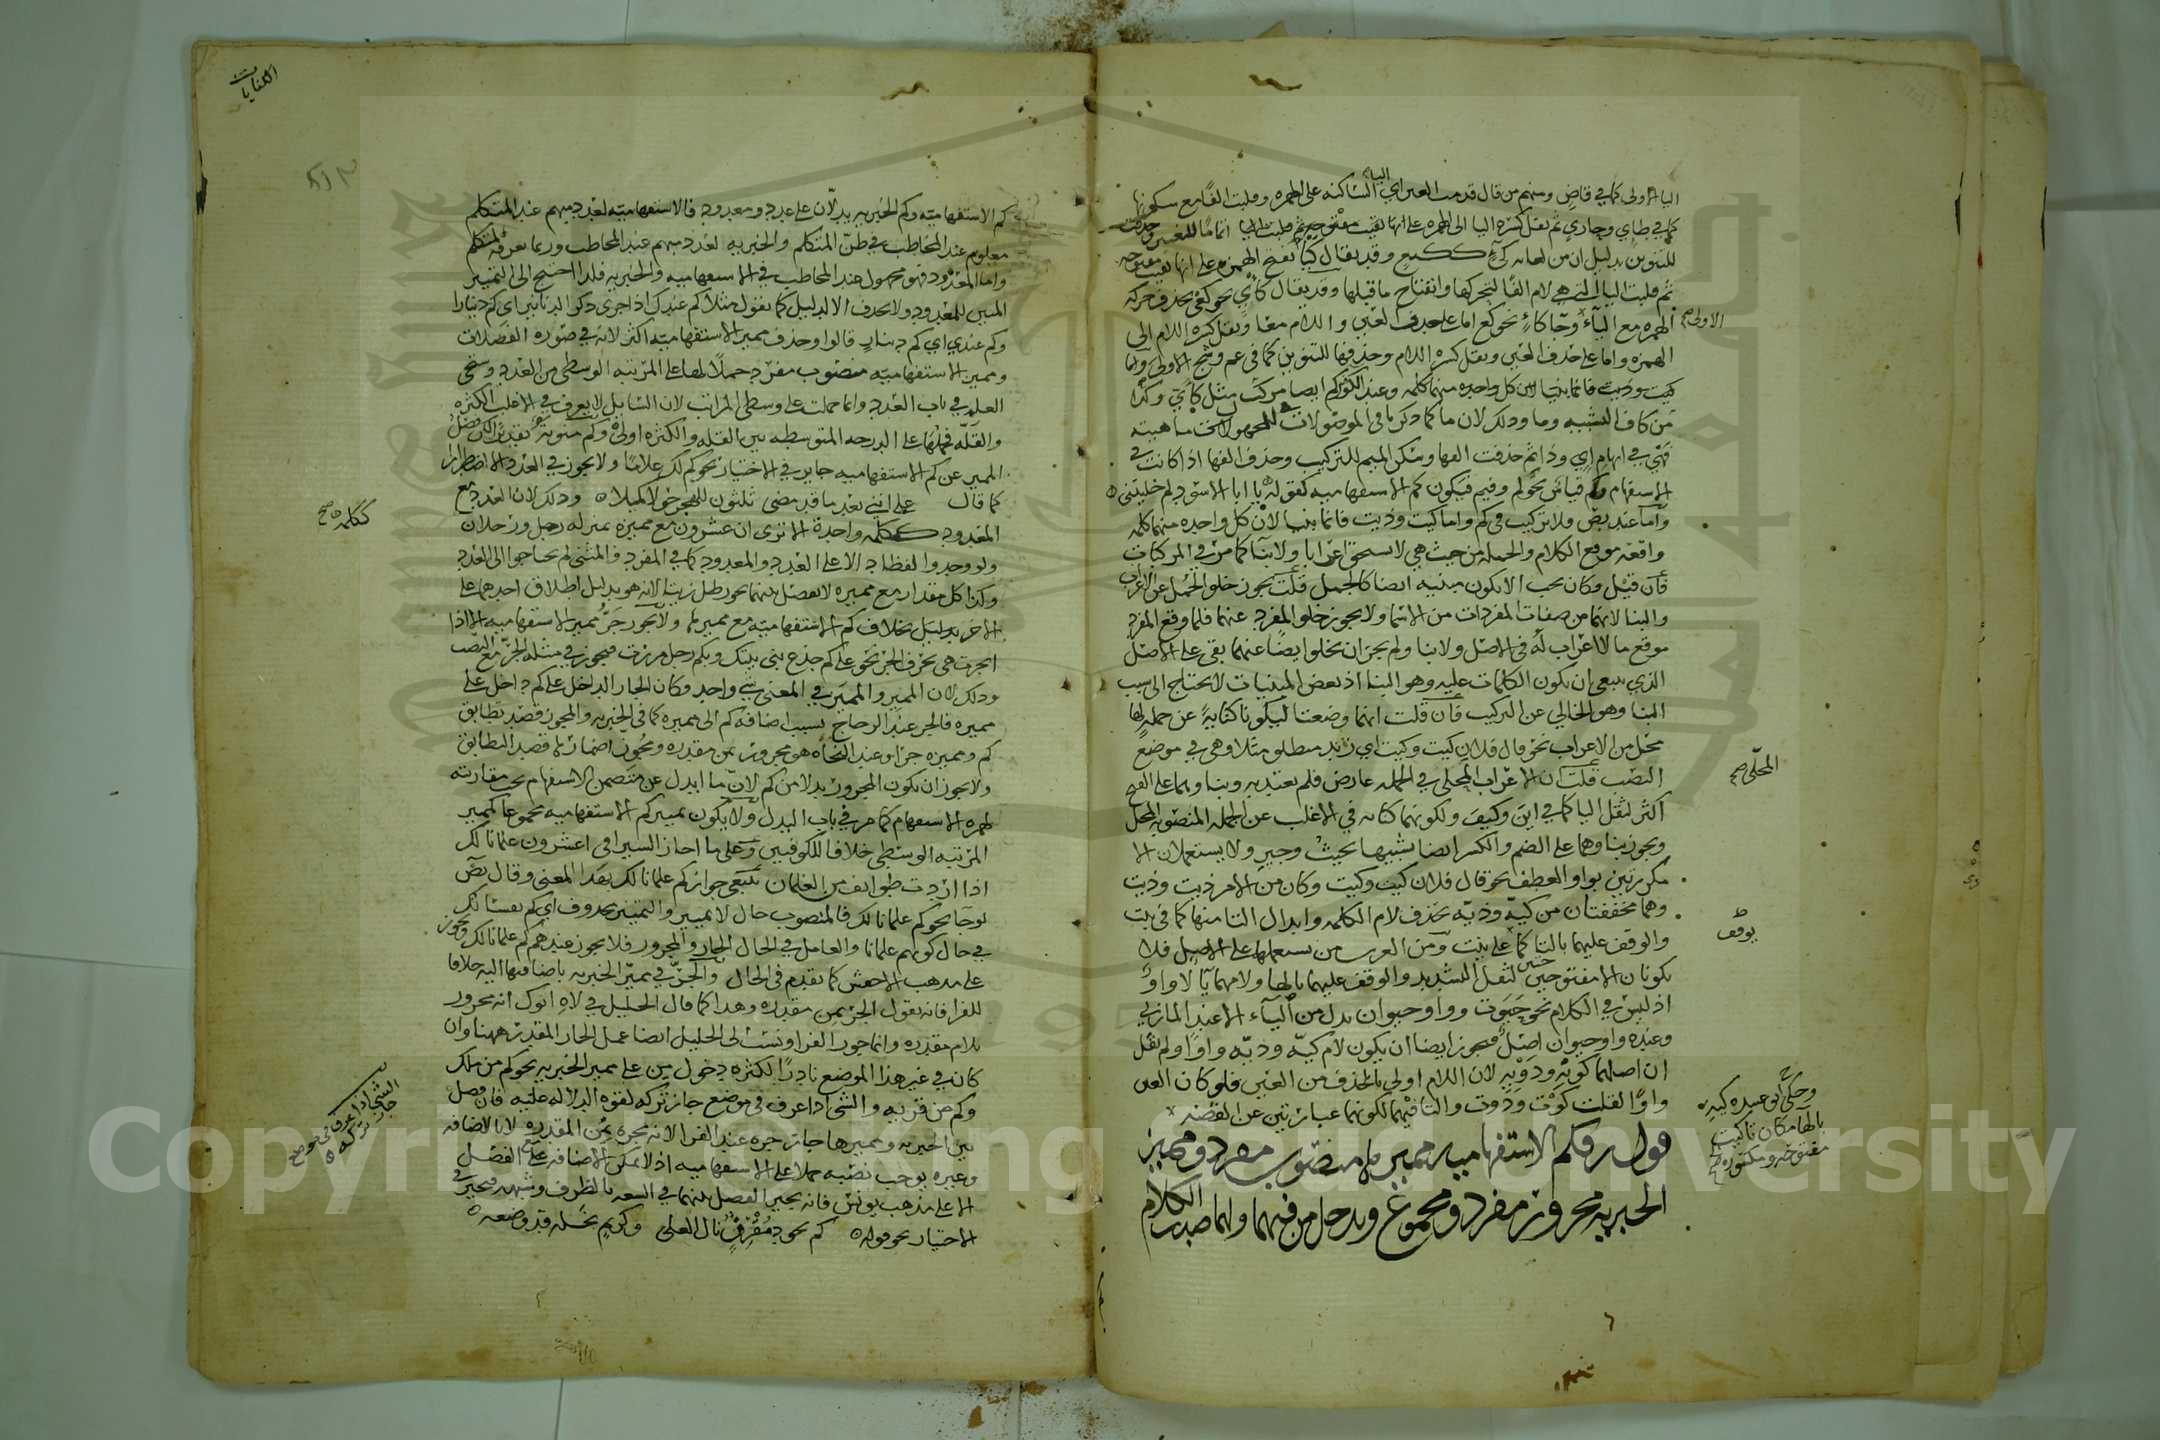 الياء الاولى كما في قاض ومنهم من قال قدمت العين اي الياء الساكنة على الهمزة وقلبت الفا مع سكونها
كما في طاي وحاري ثم نقل كسرة اليا الى الهمزة
للتنوين بدليل ان من لغاته كيء ككيع وقد يقال كيا بفتح الهمزة على انها بقيت مفتوحة
ثم قلبت اليا التي هي لام الفا لتحركها وانفتاح ما قبلها وقد يقال كأي نحو كعي بحذف حركة
الهمزة مع الياء وجا كاء نحو كع اما على حذف العين واللام معا ونقل كسرة اللام الى
الهمزة واما على حذف العين ونقل كسرة اللام وحذفها للتنوين كما في عم وشج الاولى واما
كيت وذيت فانما بنيا لان كل واحدة منهما كلمة وعند الكوفيين كم ايضا مركب مثل كأي وكذا
من كاف التشبيه وما وذلك لان ما كما ذكرنا في الموصولات للمجهول ماهيته
فهي في ابهام اي وذا ثم حذفت الفها وسكن الميم للتركيب وحذف الفها اذا كانت في
الاستفهام قياس نحو لم وفيم فيكون كم الاستفهامية كقوله يا ابا الاسود لم خليتني
واما عند بص فلا تركيب في كم واما كيت وذيت فانما بنيا لان كل واحدة منهما كلمة
واقعة موقع الكلام والجملة من حيث هي لا تستحق اعرابا ولا بنا كما مر في المركبات
فان قيل وكان يجب الا يكون مبنية ايضا كالجمل قلت يجوز خلو الجمل عن الاعراب
والبنا لانهما من صفات المفردات من الاسما ولا يجوز خلو المفرد عنهما فلما وقع المفرد
موقع ما لا اعراب له في الاصل ولا بنا ولم يجز ان يخلوا ايضا عنهما بقي على الاصل
الذي ينبغي ان يكون الكلمات عليه وهو البنا اذ بعض المبنيات لا يحتاج الى سبب
البنا وهو الخالي عن التركيب فان قلت انهما وضعتا ليكونا كناية عن جملة لها
محل من الاعراب نحو قال فلان كيت وكيت اي زيد منطلق مثلا وهي في موضع
النصب قلت ان الاعراب المحلي في الجملة عارض فلم يعتد به وبناوهما على الفتح
اكثر لثقل اليا كما في اين وكيف ولكونهما كناية في الاغلب عن الجملة المنصوبة المحل
ويجوز بناوهما على الضم والكسر ايضا تشبيها بحيث وجير ولا يستعملان الا
مكررتين بواو العطف نحو قال فلان كيت وكيت وكان من الامر ذيت وذيت
وهما مخففتان من كية وذية بحذف لام الكلمة وابدال التا منها كما في بنت
والوقف عليهما بالتا كما على بنت ومن العرب من يستعملها على الاصل فلا
يكونان الا مفتوحين لثقل التشديد والوقف عليهما بالها ولامهما يا لا واو
اذ ليس في الكلام نحو حيوت وواو حيوان بدل من الياء الا عند المازني
وعنده واو حيوان اصل فيجوز ايضا ان يكون لام كية وذية واوا ولم نقل
ان اصلهما كوية وذوية لان اللام اولى بالحذف من العين فلو كان العين
واوا لقلت كوت وذوت والتا فيهما لكونهما عبارتين عن القصة
قوله فكم الاستفهامية مميزها منصوب مفرد ومميز
الخبرية مجرور مفرد ومجموع وتدخل من فيهما ولهما صدر الكلام
الاولى صح
المحلى صح
يوقف
وحكى ابو عبيدة كيه
بالها مكان تا كيت
مفتوحة ومكسورة صح
الكنايات
كم الاستفهامية وكم الخبرية يدلان على عدد ومعدود فالاستفهامية لعدد مبهم عند المتكلم
معلوم عند المخاطب في ظن المتكلم والخبرية لعدد مبهم عند المخاطب وربما يعرفه المتكلم
واما المعدود فهو مجهول عند المخاطب في الاستفهامية والخبرية فلذا احتيج الى التمييز
المبين للمعدود ولا يحذف الا لدليل كما تقول مثلا كم عندك اذا جرى ذكر الدنانير اي كم دينارا
وكم عندي اي كم دينار قالوا وحذف مميز الاستفهامية اكثر لانه في صورة الفضلات
ومميز الاستفهامية منصوب مفرد حملا لها على المرتبة الوسطى من العدد وسيجي
العلة في باب العدد وانما حملت على وسطى المراتب لان السايل لا يعرف في الاغلب الكثرة
والقلة فحملها على الدرجة المتوسطة بين القلة والكثرة اولى وكم منونة تقديرا لكن فصل
المميز عن كم الاستفهامية جايز في الاختيار نحو كم لك غلاما ولا يجوز في العدد الا اضطرارا
كما قال على انني بعد ما قد مضى ثلثون للهجر حولا كميلا وذلك لان العدد مع
المعدود ككلمة واحدة الا ترى ان عشرون مع مميزه بمنزلة رجل ورجلان
ولو وجدوا لفظا دالا على العدد والمعدود كما في المفرد والمثنى لم يحتاجوا الى العدد
وكذا كل مقدار مع مميزه لا يفصل بينهما نحو رطل زيتا لانه هو بدليل اطلاق احدهما على
الاخر بخلاف كم الاستفهامية مع مميزها ولا يجوز جر مميز الاستفهامية الا اذا
انجرت هي بحرف الجر نحو على كم جذع بني بيتك وبكم رجل مررت فيجوز في مثله الجر مع النصب
وذلك لان المميز والمميز في المعنى شي واحد وكان الجار الداخل على كم داخل على
مميزه فالجر عند الزجاج بسبب اضافة كم الى مميزه كما في الخبرية والمجوز قصد تطابق
كم ومميزه جرا وعند النحاة هو مجرور بمن مقدرة ويجوز اضمارها قصد التطابق
ولا يجوز ان يكون المجرور بدلا من كم لان ما ابدل عن متضمن الاستفهام يجب مقارنته
لهمزة الاستفهام كما مر في باب البدل ولا يكون مميز كم الاستفهامية مجموعا كمميز
المرتبة الوسطى خلافا للكوفيين وعلى ما اجاز السيرافي اعشرون غلمانا لك
اذا اردت طوايف من الغلمان ينبغي جواز كم غلمانا لك بهذا المعنى وقال بص
لو جا نحو كم غلمانا لك فالمنصوب حال لا تمييز والتمييز محذوف اي كم نفسا لك
في حال كونهم غلمانا والعامل في الحال الجار والمجرور فلا يجوز عندهم كم غلمانا لك ويجوز
على مذهب الاخفش كما تقدم في الحال والجر في مميز الخبرية باضافتها اليه خلافا
للفرا فانه يقول الجر بمن مقدرة وهذا كما قال الخليل في لاه ابوك انه مجرور
بلام مقدرة وانما جوز الفرا ونسب الى الخليل ايضا عمل الجار المقدر ههنا وان
كان في غير هذا الموضع نادرا لكثرة دخول من على مميز الخبرية نحو كم من ملك
وكم من قرية والشي اذا عرف في موضع جاز تركه لقوة الدلالة عليه فان فصل
بين الخبرية ومميزها جاز جره عند الفرا لانه يجره بمن المقدرة لا بالاضافة
وغيره يوجب نصبه حملا على الاستفهامية اذ لا يمكن الاضافة مع الفصل
الا على مذهب يونس فانه يجيز الفصل بينهما في السعة بالظرف وشبهه فيجيز في
الاختيار نحو قوله كم بجود مقرف نال العلى وكريم بخله قد وضعه
ككلمة صح
الشي اذا عرف في موضع
جاز تركه